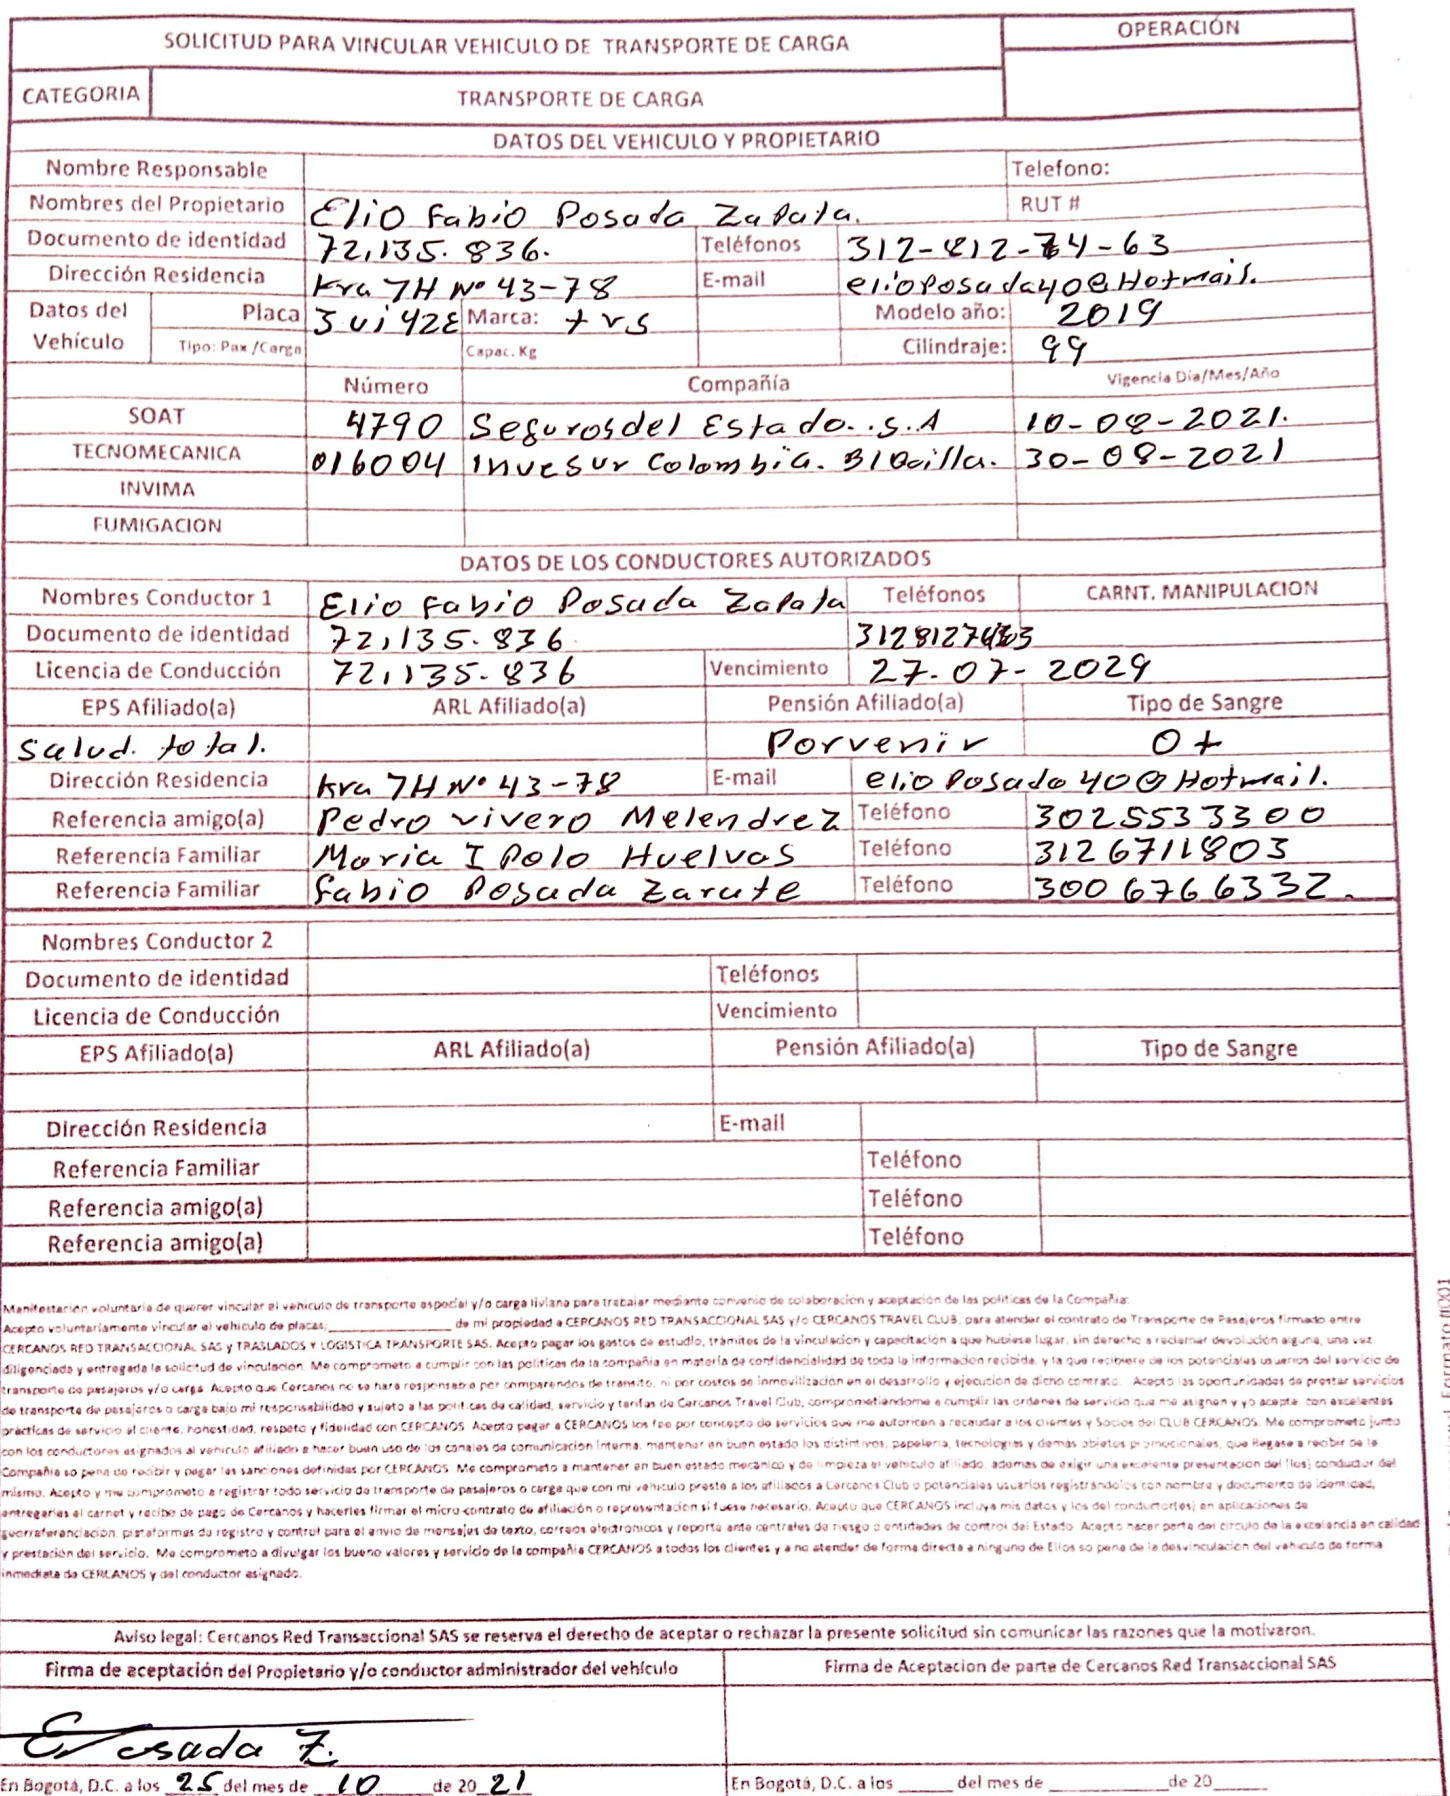 SOLICITUD PARA VINCULAR VEHICULO DE TRANSPORTE DE CARGA
OPERACIÓN
CATEGORIA
TRANSPORTE DE CARGA
DATOS DEL VEHICULO Y PROPIETARIO
Nombre Responsable Telefono:
Nombres del Propietario Elio Fabio Posada Zapata. RUT #
Documento de identidad 72,135.836. Teléfonos 312-812-74-63
Dirección Residencia Kra 7H Nº 43-78 E-mail elioposada40@Hotmail.
Datos del Vehículo Placa 3 Ui 42E Marca: tvs Modelo año: 2019
Tipo: Pax /Carga Capac. Kg Cilindraje: 99
Número Compañía Vigencia Día/Mes/Año
SOAT 4790 Seguros del Estado..S.A 10-08-2021.
TECNOMECANICA 016004 Invesur Colombia. 30-08-2021
INVIMA
FUMIGACION
DATOS DE LOS CONDUCTORES AUTORIZADOS
Nombres Conductor 1 Elio Fabio Posada Zapata Teléfonos CARNT. MANIPULACION
Documento de identidad 72,135.836
Licencia de Conducción 72,135.836 Vencimiento 27-07-2029
EPS Afiliado(a) ARL Afiliado(a) Pensión Afiliado(a) Tipo de Sangre
Salud. total. Porvenir O+
Dirección Residencia Kra 7H Nº 43-78 E-mail elio Posada 40@Hotmail.
Referencia amigo(a) Pedro vivero Melendrez Teléfono 3025533300
Referencia Familiar Maria I Polo Huelvas Teléfono
Referencia Familiar Fabio Posada Zarate Teléfono 3006766332.
Nombres Conductor 2
Documento de identidad Teléfonos
Licencia de Conducción Vencimiento
EPS Afiliado(a) ARL Afiliado(a) Pensión Afiliado(a) Tipo de Sangre
Dirección Residencia E-mail
Referencia Familiar Teléfono
Referencia amigo(a) Teléfono
Referencia amigo(a) Teléfono
Manifestación voluntaria de querer vincular el vehiculo de transporte especial y/o carga liviana para trabajar mediante convenio de colaboración y aceptación de las politicas de la Compañia:
Acepto voluntariamente vincular el vehiculo de placas;____________ de mi propiedad a CERCANOS RED TRANSACCIONAL SAS y/o CERCANOS TRAVEL CLUB, para atender el contrato de Transporte de Pasajeros firmado entre
CERCANOS RED TRANSACCIONAL SAS y TRASLADOS Y LOGISTICA TRANSPORTE SAS. Acepto pagar los gastos de estudio, trámites de la vinculación y capacitación a que hubiese lugar, sin derecho a reclamar devolución alguna, una vez
diligenciada y entregada la solicitud de vinculación. Me comprometo a cumplir con las políticas de la compañía en materia de confidencialidad de toda la información recibida, y la que recibiere de los potenciales usuarios del servicio de
transporte de pasajeros y/o carga. Acepto que Cercanos no se hara responsable por comparendos de transito, ni por costos de inmovilización en el desarrollo y ejecución de dicho contrato. Acepto las oportunidades de prestar servicios
de transporte de pasajeros o carga bajo mi responsabilidad y sujeto a las políticas de calidad, servicio y tarifas de Cercanos Travel Club, comprometiéndome a cumplir las ordenes de servicio que me asignen y yo acepte, con excelentes
prácticas de servicio al cliente, honestidad, respeto y fidelidad con CERCANOS. Acepto pagar a CERCANOS los fee por concepto de servicios que me autoricen a recaudar a los clientes y Socios del CLUB CERCANOS. Me comprometo junto
con los conductores asignados al vehiculo afiliado a hacer buen uso de los canales de comunicación interna, mantener en buen estado los distintivos, papelería, tecnologias y demás objetos promocionales, que llegase a recibir de la
Compañía so pena de recibir y pagar las sanciones definidas por CERCANOS. Me comprometo a mantener en buen estado mecánico y de limpieza el vehiculo afiliado, ademas de exigir una excelente presentación del (los) conductor del
mismo. Acepto y me comprometo a registrar todo servicio de transporte de pasajeros o carga que con mi vehiculo preste a los afiliados a Cercanos Club o potenciales usuarios registrándolos con nombre y documento de identidad,
entregarles el carnet y recibo de pago de Cercanos y hacerles firmar el micro contrato de afiliación o representación si fuese necesario. Acepto que CERCANOS incluya mis datos y los del conductor(es) en aplicaciones de
georreferenciación, plataformas de registro y control para el envio de mensajes de texto, correos electrónicos y reporte ante centrales de riesgo o entidades de control del Estado. Acepto hacer parte del circulo de la excelencia en calidad
y prestación del servicio. Me comprometo a divulgar los bueno valores y servicio de la compañía CERCANOS a todos los clientes y a no atender de forma directa a ninguno de Ellos so pena de la desvinculación del vehiculo de forma
inmediata de CERCANOS y del conductor asignado.
Aviso legal: Cercanos Red Transaccional SAS se reserva el derecho de aceptar o rechazar la presente solicitud sin comunicar las razones que la motivaron.
Firma de aceptación del Propietario y/o conductor administrador del vehículo
Firma de Aceptacion de parte de Cercanos Red Transaccional SAS
En Bogotá, D.C. a los 25 del mes de 10 de 20 21
En Bogotá, D.C. a los _____ del mes de __________ de 20_____
Formato #001